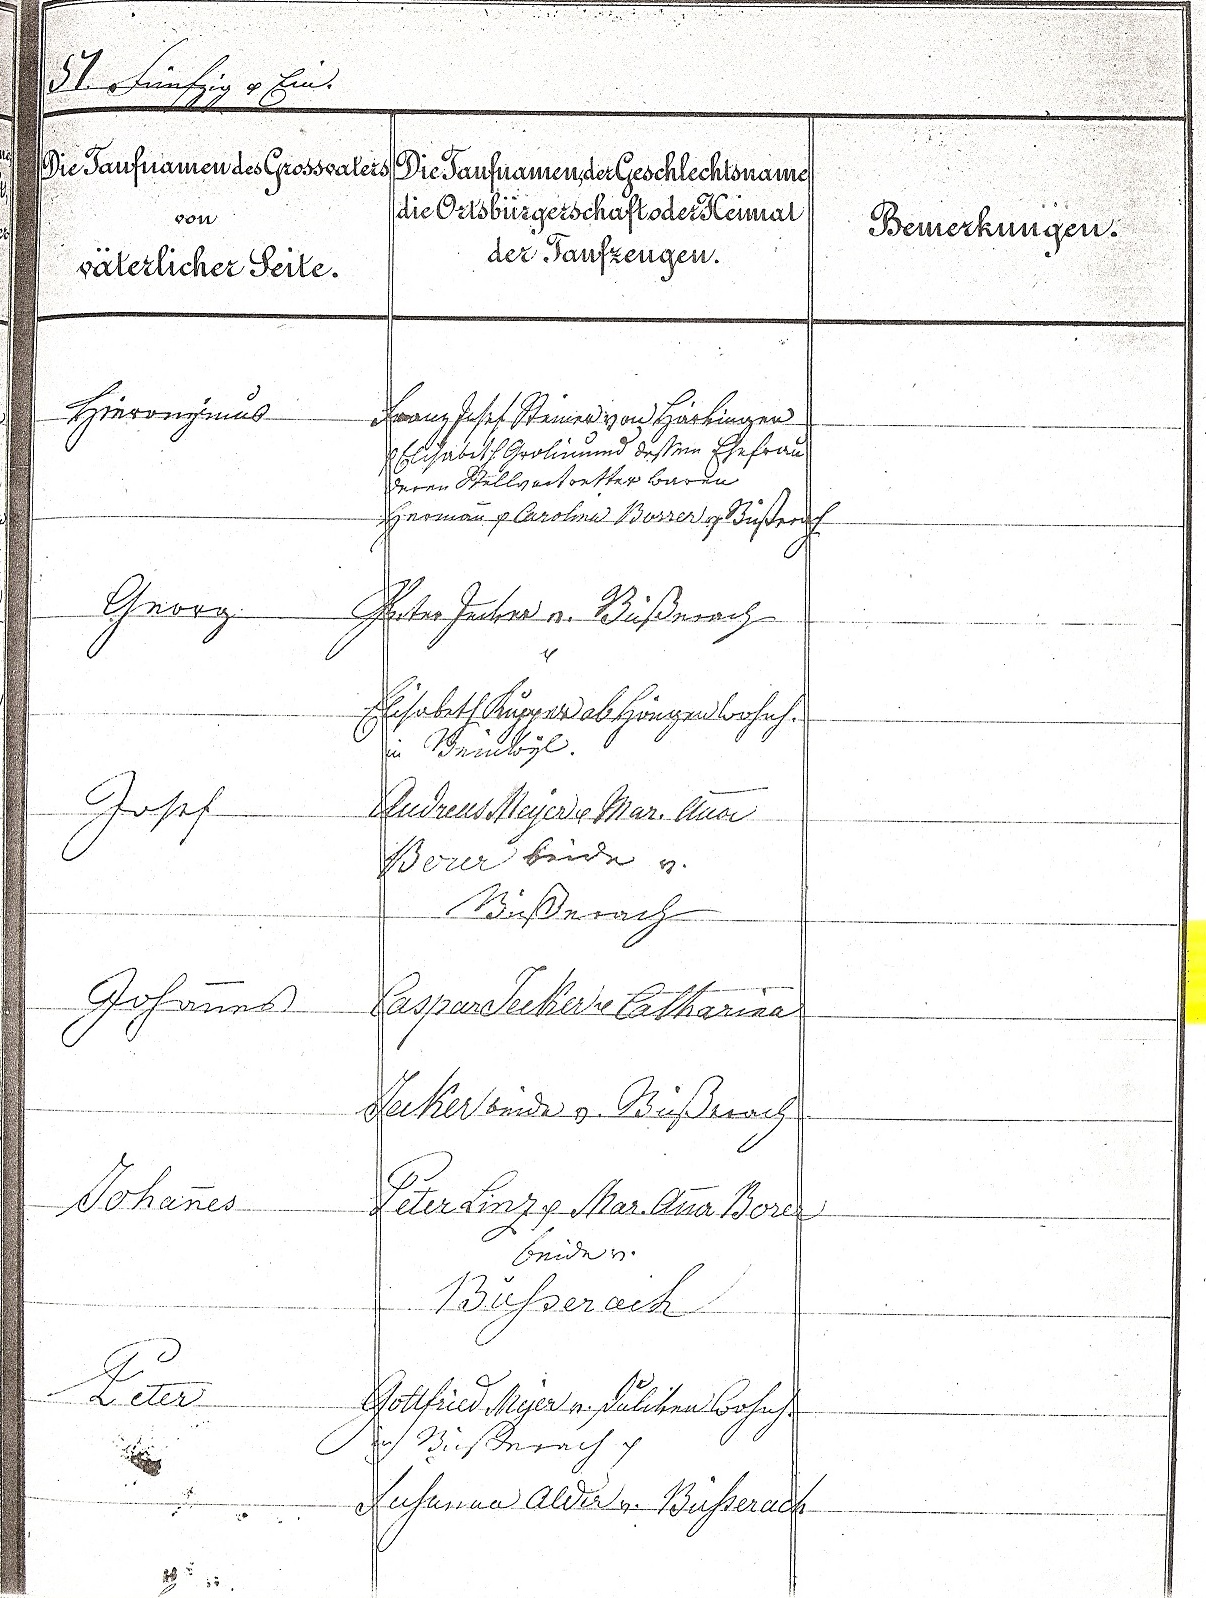 51. Fünfzig & Ein.
Die Taufnamen des Grossvaters
von
väterlicher Seite.
Die Taufnamen, der Geschlechtsname
die Ortsbürgerschaft oder Heimat
der Taufzeugen.
Bemerkungen.
Hieronÿmus
Franz Josef Steiner von Härkingen
& Elisabeth Grolimund dessen Ehefrau
deren Stellvertretter waren
Hermañ & Carolina Borrer v. Büßerach
Georg
Peter Jecker v. Büßerach
&
Elisabeth Kupper ab Höngen wohnh.
in Beinwÿl.
Josef
Andreas Meÿer & Mar. Ana
Borer beide v.
Büßerach
Johanes
Caspar Jecker & Catharina
Jecker beide v. Büßerach
Johañes
Peter Linz & Mar. Ana Borer
beide v.
Büsserach
Peter
Gottfried Meÿer v. wohnh.
in Büßerach &
Susanna Alder v. Büsserach